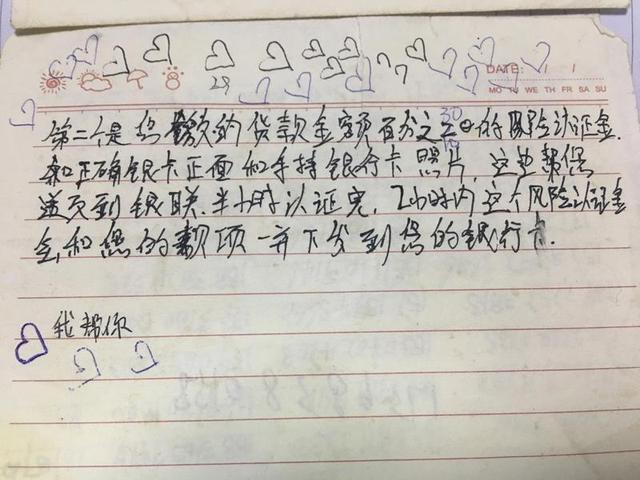 29
DATE: / /
MO TU WE TH FR SA SU
30
第二个是您缴的贷款金额百分之二十的风险认证金.
19
和正确银卡正面和手持银行卡照片,这边帮您
送页到银联.半小时认证完,2小时内这个风险认证金
会和您的款项一并下发到您的银行卡.
我帮你